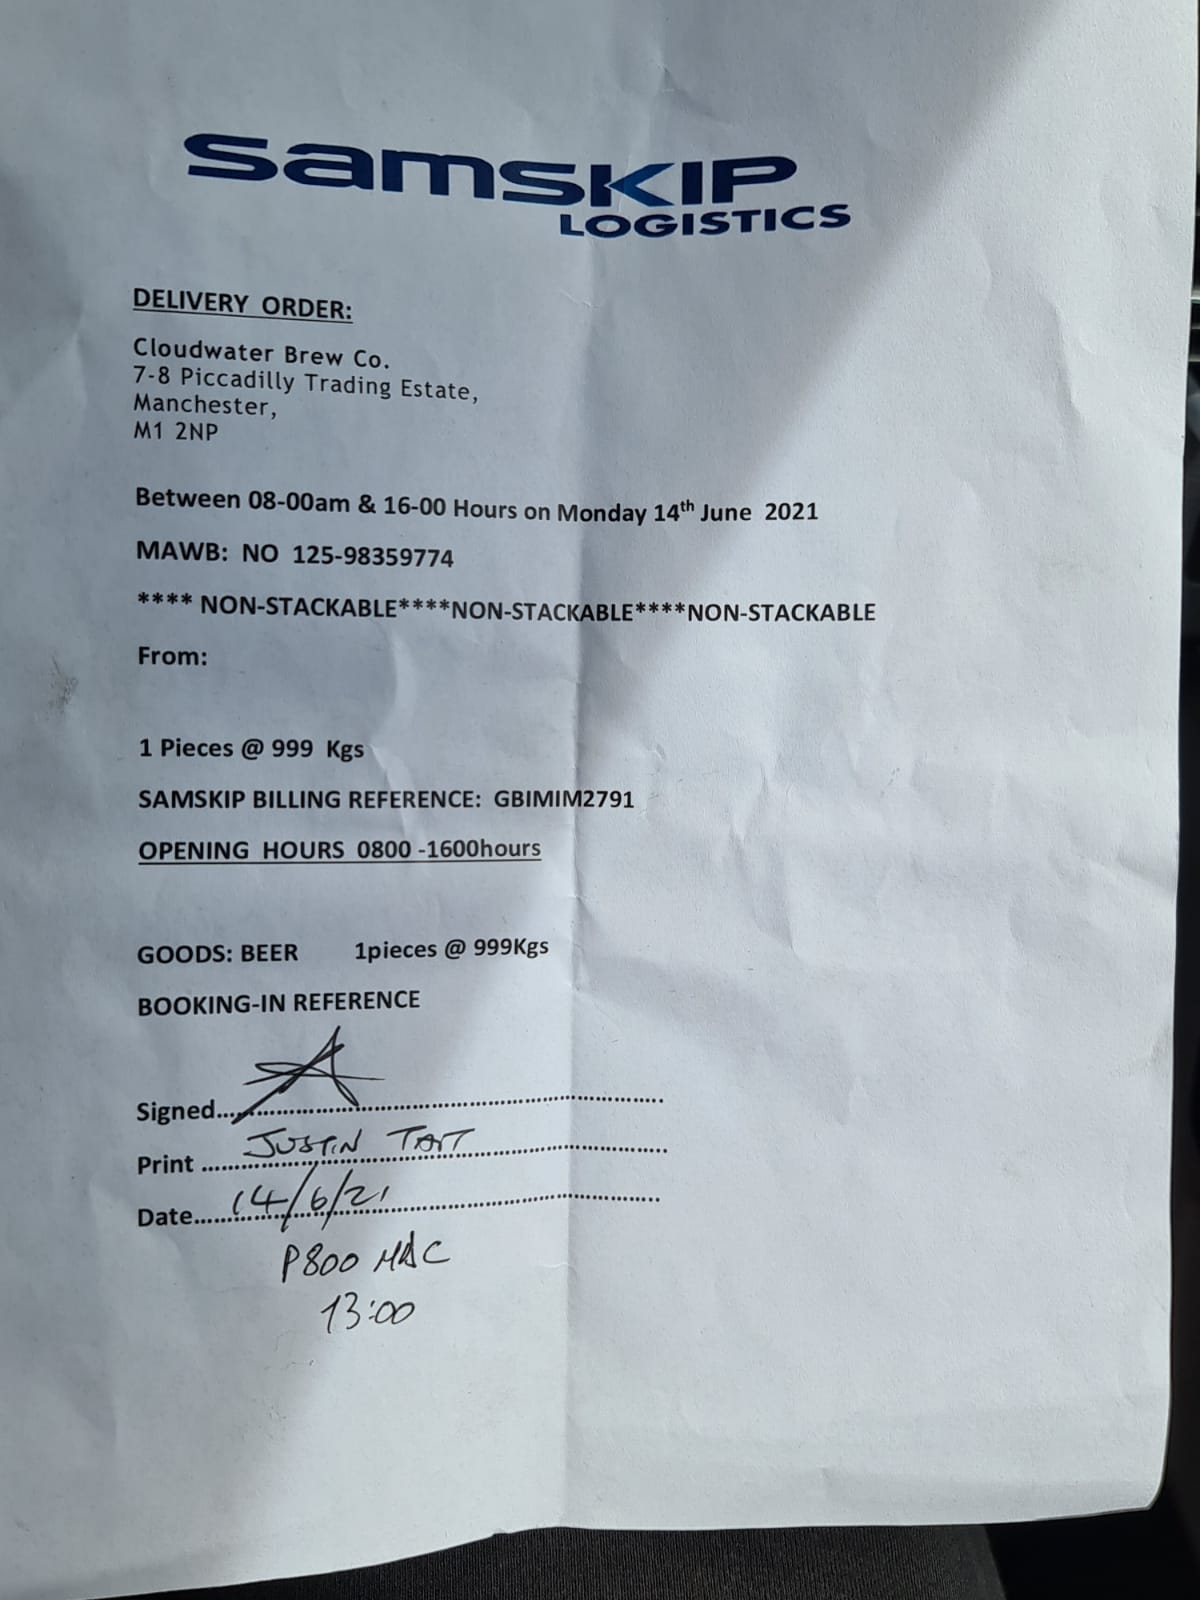 samskip
LOGISTICS
DELIVERY ORDER:
Cloudwater Brew Co.
7-8 Piccadilly Trading Estate,
Manchester,
M1 2NP
Between 08-00am & 16-00 Hours on Monday 14th June 2021
MAWB: NO 125-98359774
**** NON-STACKABLE****NON-STACKABLE****NON-STACKABLE
From:
1 Pieces @ 999 Kgs
SAMSKIP BILLING REFERENCE: GBIMIM2791
OPENING HOURS 0800 -1600hours
GOODS: BEER 1pieces @ 999Kgs
BOOKING-IN REFERENCE
Signed
Print JUSTIN TAIT
Date 14/6/21
P800 MAC
13:00